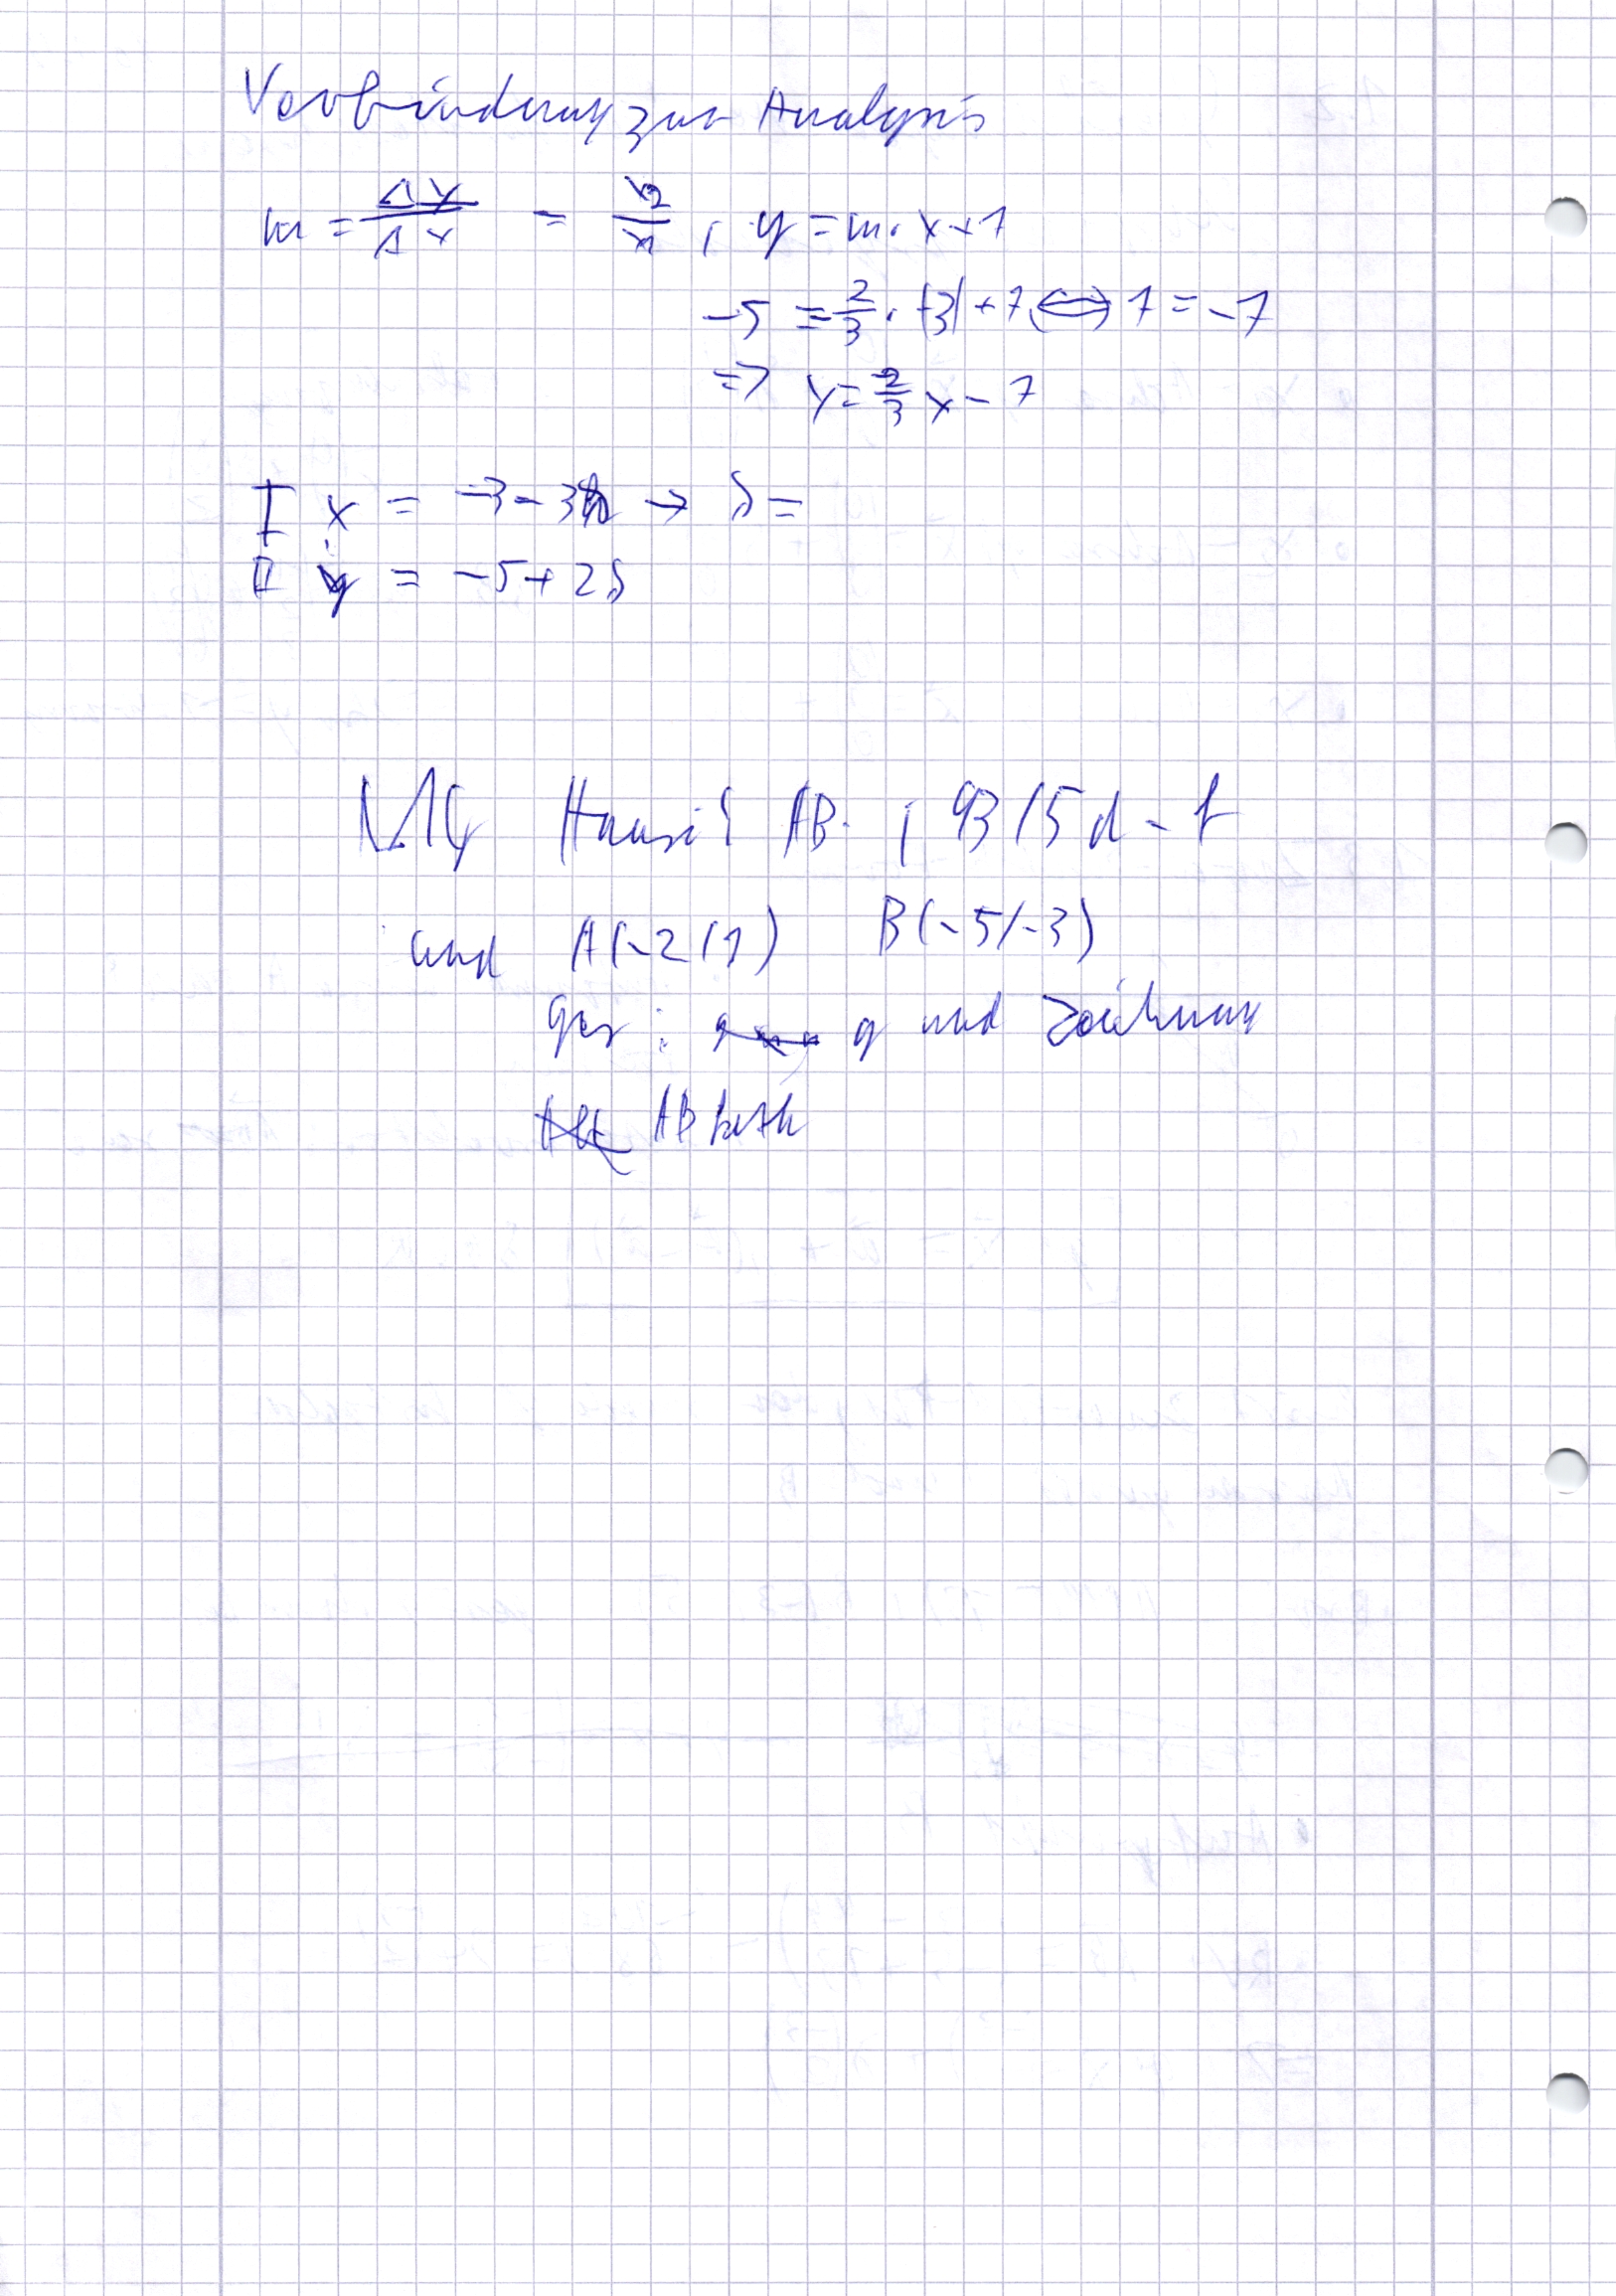 Verbindung zur Analysis
m = Δy/Δx = v2/v1 , y = m · x + 1
-5 = 2/3 · (-3) + 7 ⟺ 7 = -7
⇒ y = 2/3 x - 7
I x = -3 - 3λ → λ =
II y = -5 + 2λ
Hausi AB. ; 93/5 d - f
und A(-2/1) B(-5/-3)
ges: g und Zeichnung
AB